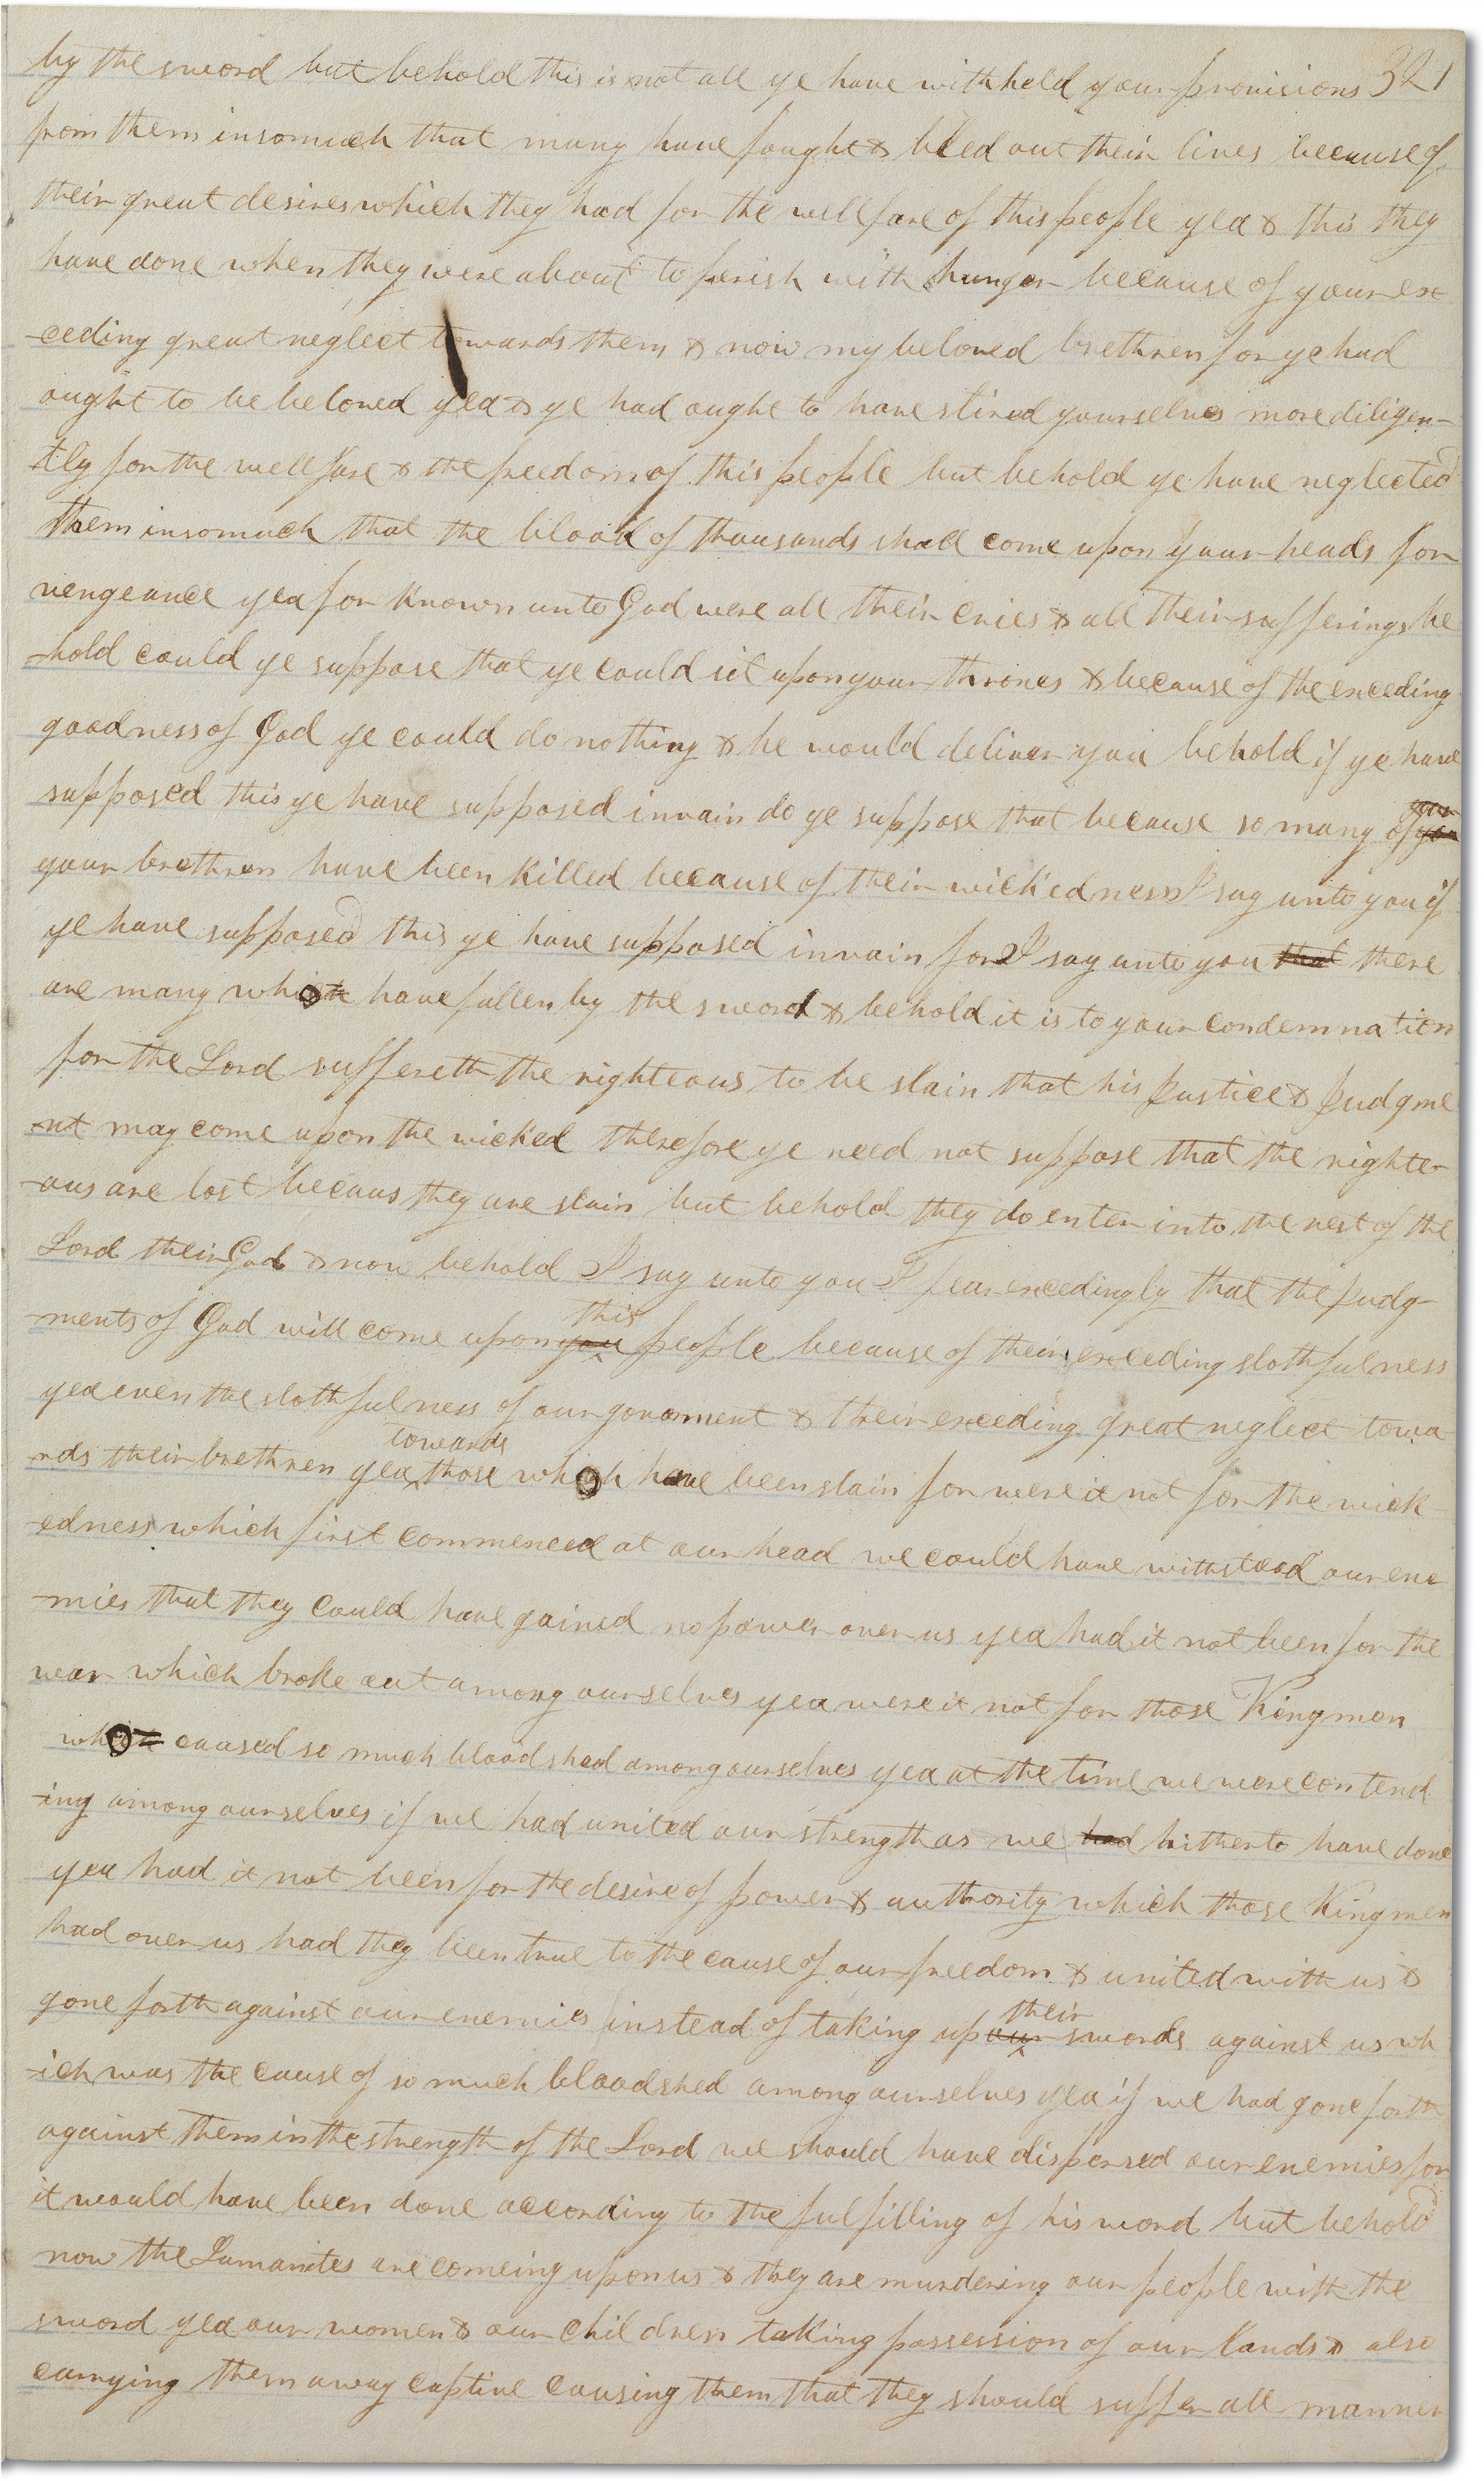 by the sword but behold this is not all ye have withheld your provisions 321
from them insomuch that many have faught & bled out their lives because of
their great desires which they had for the wellfare of this people yea & this they
have done when they were about to perish with hunger because of your ex
-ceding great neglect towards them & now my beloved brethren for ye had
aught to be beloved yea & ye had aught to have stired yourselves more diligen-
-tly for the wellfare & the freedom of this people but behold ye have neglected
them insomuch that the blood of thousands shall come upon your heads for
vengeance yea for known unto God were all their cries & all their sufferings be
-hold could ye suppose that ye could sit upon your thrones & because of the exceding
goodness of God ye could do nothing & he would deliver you behold if ye have
supposed this ye have supposed in vain do ye suppose that because so many of you
your brethren have been killed because of their wickedness I say unto you if
ye have supposed this ye have supposed in vain for I say unto you that there
are many who have fallen by the sword & behold it is to your condemnation
for the Lord suffereth the righteous to be slain that his Justice & Judgme
-nt may come upon the wicked therefore ye need not suppose that the righte-
-ous are lost becaus they are slain but behold they do enter into the rest of the
Lord their God & now behold I say unto you I fear excedingly that the Judg-
this
-ments of God will come upon you people because of their exceeding slothfulness
yea even the slothfulness of our goverment & their exceding great neglect towa
towards
-rds their brethren yea those who have been slain for were it not for the wick
-edness which first commenced at our head we could have withstood our ene
-mies that they could have gained no power over us yea had it not been for the
war which broke out among ourselves yea were it not for those Kingmen
who caused so much bloodshed among ourselves yea at the time we were contend
-ing among ourselves if we had united our strength as we had hitherto have done
yea had it not been for the desire of power & authority which those Kingmen
had over us had they been true to the cause of our freedom & united with us &
their
gone forth against our enemies instead of taking up our swords against us wh
-ich was the cause of so much bloodshed among ourselves yea if we had gone forth
against them in the strength of the Lord we should have dispersed our enemies for
it would have been done according to the fulfilling of his word but behold
now the Lamanites are comeing upon us & they are murdering our people with the
sword yea our women & our children taking possession of our lands & also
carrying them away captive causing them that they should suffer all manner